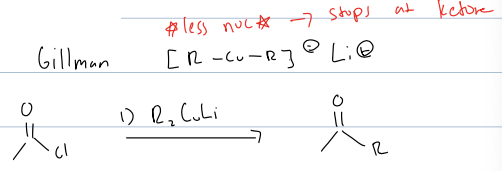 *less nuc* → stops at ketone
Gillman [R-Cu-R]⊖ Li⊕
O O
1) R₂CuLi
Cl R